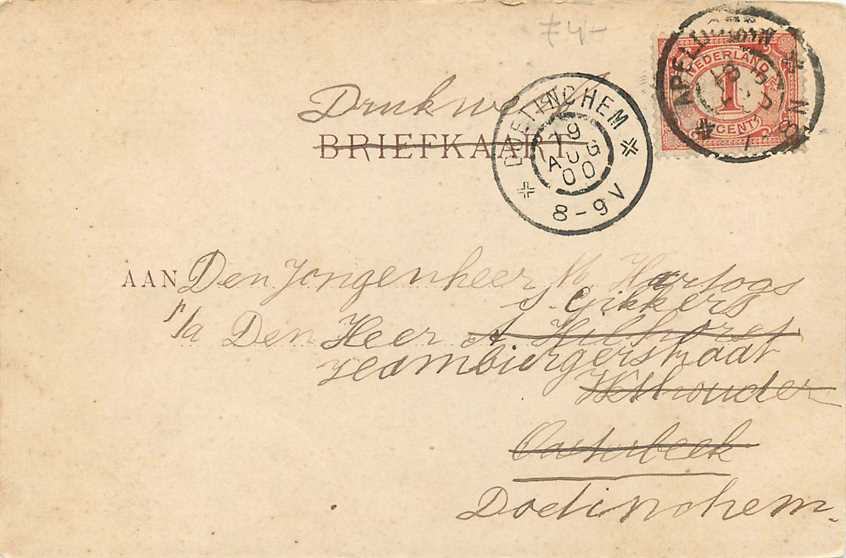 £4-
Drukwerk
BRIEFKAART
APELDOORN
NEDERLAND
1
CENT
DOETINCHEM
19
AUG
00
8-9V
AAN Den Jongenheer M. Hartogs
S. Gikkers
p/a Den Heer A. Hilhorst
Heamburgerstraat
Wethouder
Oosterbeek
Doetinchem.